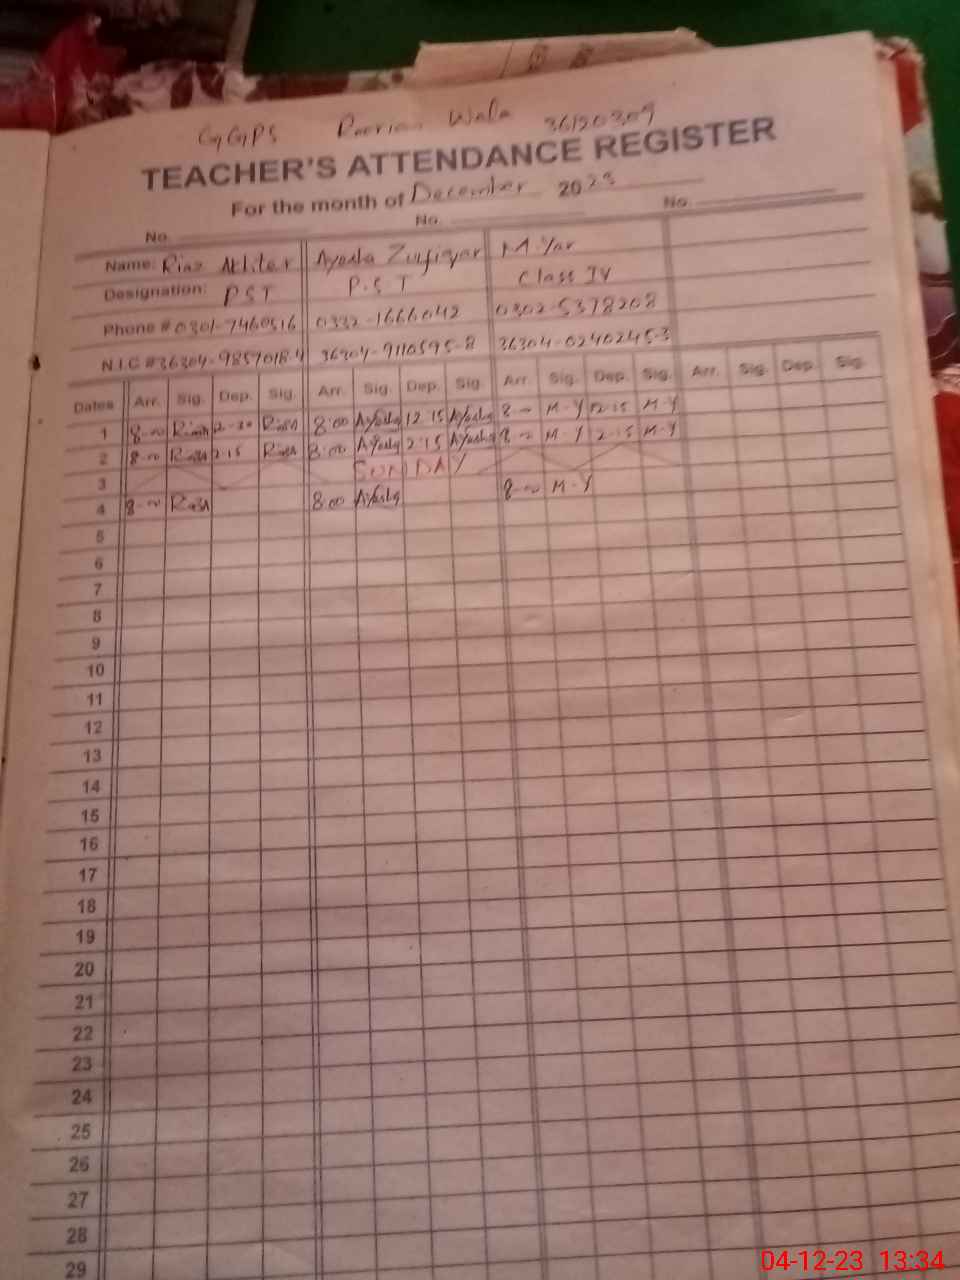 GGPS Wala 36120309
TEACHER'S ATTENDANCE REGISTER
For the month of December 2023
No. No. No.
Name: Riaz Akhter Ayesha Zulfiqar M.Yar
Designation: PST P.S T Class IV
Phone # 0301-7460516 0332-1666042 0302-5378208
N.I.C # 36304-9857018-4 36304-9110595-8 36304-0240245-3
Dates Arr. Sig. Dep. Sig. Arr. Sig. Dep. Sig. Arr. Sig. Dep. Sig. Arr. Sig. Dep. Sig.
1 8-00 12-30 8:00 Ayesha 12.15 Ayesha 8-00 M-Y 12-15 M-Y
2 8-00 2.15 8:00 Ayesha 2.15 Ayesha 8-00 M-Y 2-15 M-Y
3 SUNDAY
4 8-00 8:00 Ayesha 8-00 M-Y
5
6
7
8
9
10
11
12
13
14
15
16
17
18
19
20
21
22
23
24
25
26
27
28
29
04-12-23 13:34